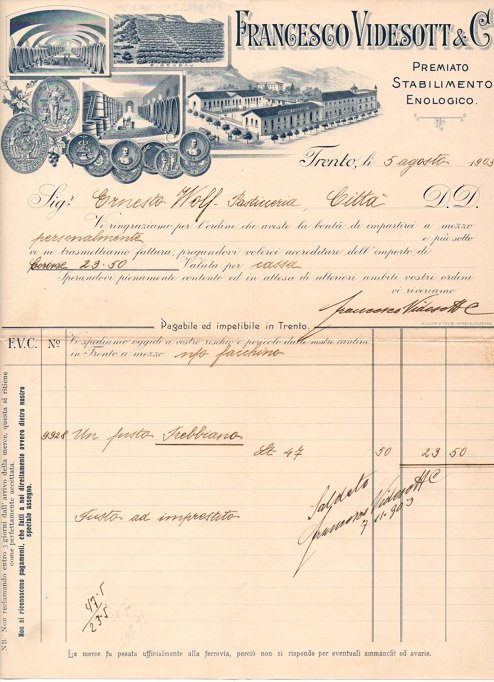 FRANCESCO VIDESOTT & C.
PREMIATO
STABILIMENTO
ENOLOGICO.
Trento, li 5 agosto 1903
Sigr. Ernesto Wolf. Pasticceria, Città D. D.
Vi ringraziamo per l'ordine che aveste la bontà di impartirci a mezzo
personalmente e più sotto
ve ne trasmettiamo fattura, pregandovi volerci accreditare dell'importo di
Corone 23.50 Valuta per cassa
Sperandovi pienamente contento ed in attesa di ulteriori ambiti vostri ordini
vi riveriamo
Francesco Videsott C
Pagabile ed impetibile in Trento.
F.V.C. No Vi spediamo oggidì a vostro rischio e pericolo dalle nostre cantine
in Trento a mezzo n/o facchino
9928 Un fusto Trebbiano
Lt 47 50 23 50
Saldato
Francesco Videsott C
7 11 903
Fusto ad imprestito
47.5
23.5
NB. Non reclamando entro 3 giorni dall' arrivo della merce, questa si ritiene
come perfettamente accettata.
Non si riconoscono pagamenti, che fatti a noi direttamente ovvero dietro nostro
speciale assegno.
La merce fu pesata ufficialmente alla ferrovia, perciò non si risponde per eventuali ammanchi od avarie.